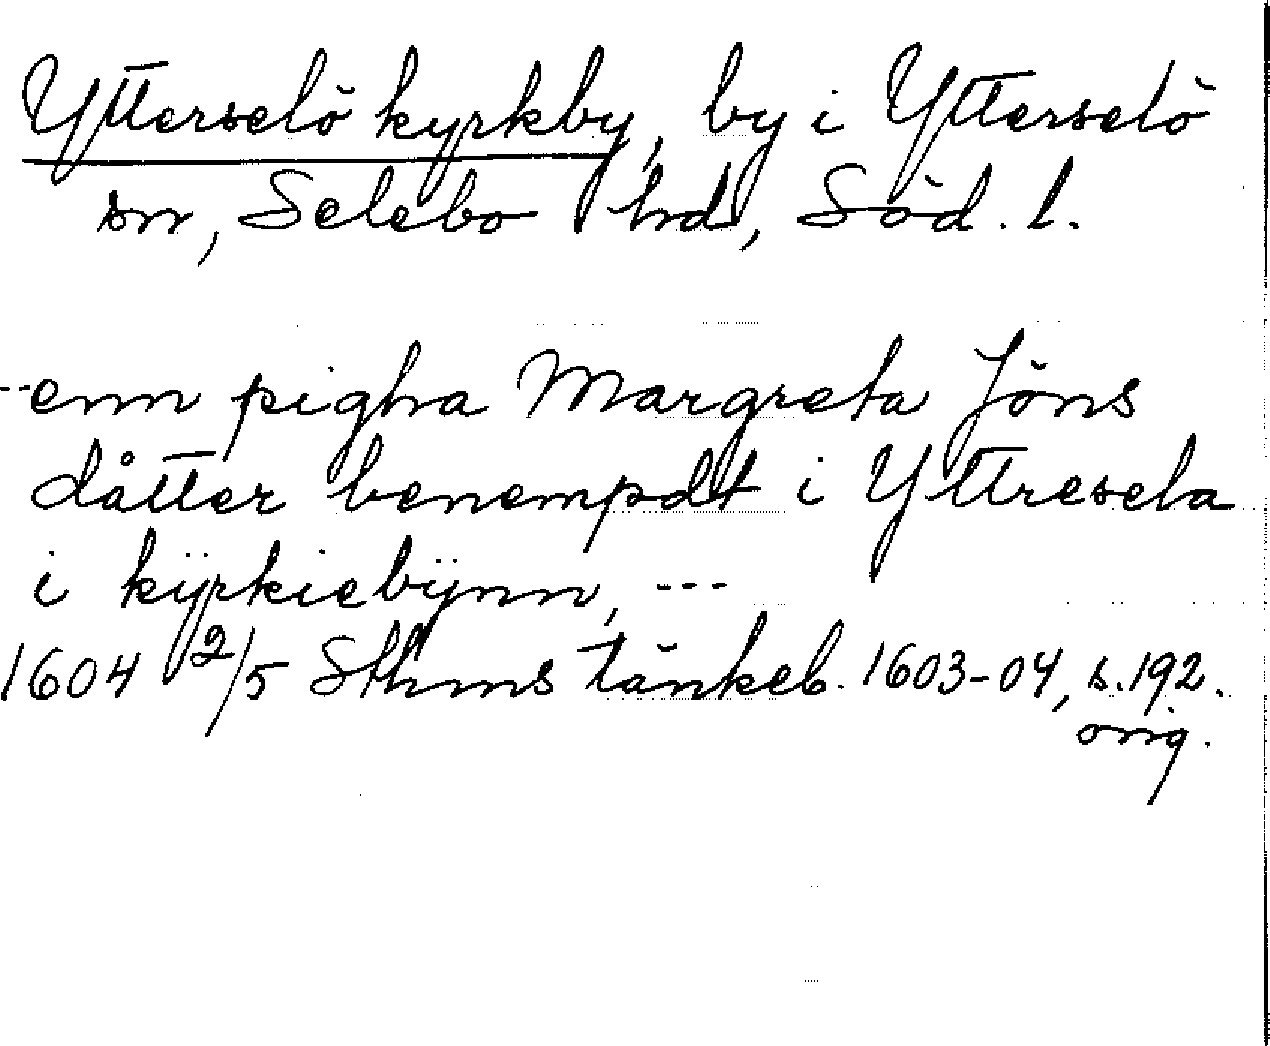 Ytterselö kyrkby, by i Ytterselö
sn, Selebo hd, Söd. l.
--enn pigha Margreta Jöns
dåtter benempdt i Yttresela
i kÿrkiebÿnn, ---
1604 2/5 Sthms tänkeb. 1603-04, s.192.
orig.